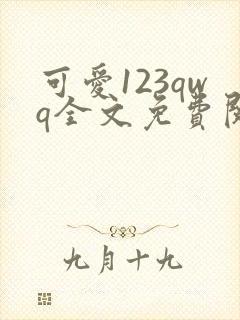 可愛123qw
q全文免費閱
九月十九